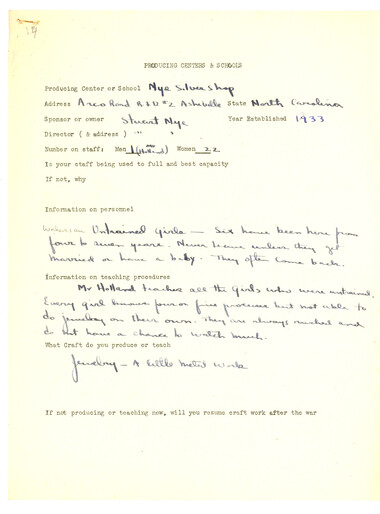 PRODUCING CENTERS & SCHOOLS
Producing Center or School Nye Silver Shop
Address Arco Road R.F.D #2 Asheville State North Carolina
Sponsor or owner Stuart Nye Year Established 1933
Director ( & address) " "
Number on staff: Men 1 (Mr Holland) Women 22
Is your staff being used to full and best capacity
If not, why
Information on personnel
Untrained Girls — Six have been here from
four to seven years. Never leave unless they get
married or have a baby. They often come back.
Information on teaching procedures
Mr Holland teaches all the girls who were untrained.
Every girl knows four or five processes but not able to
do jewelry on their own. They are always rushed and
do not have a chance to watch much.
What Craft do you produce or teach
Jewelry — A little Metal Work
If not producing or teaching now, will you resume craft work after the war